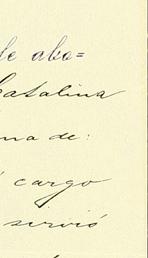 de abo=
Catalina
ma de:
cargo
servió